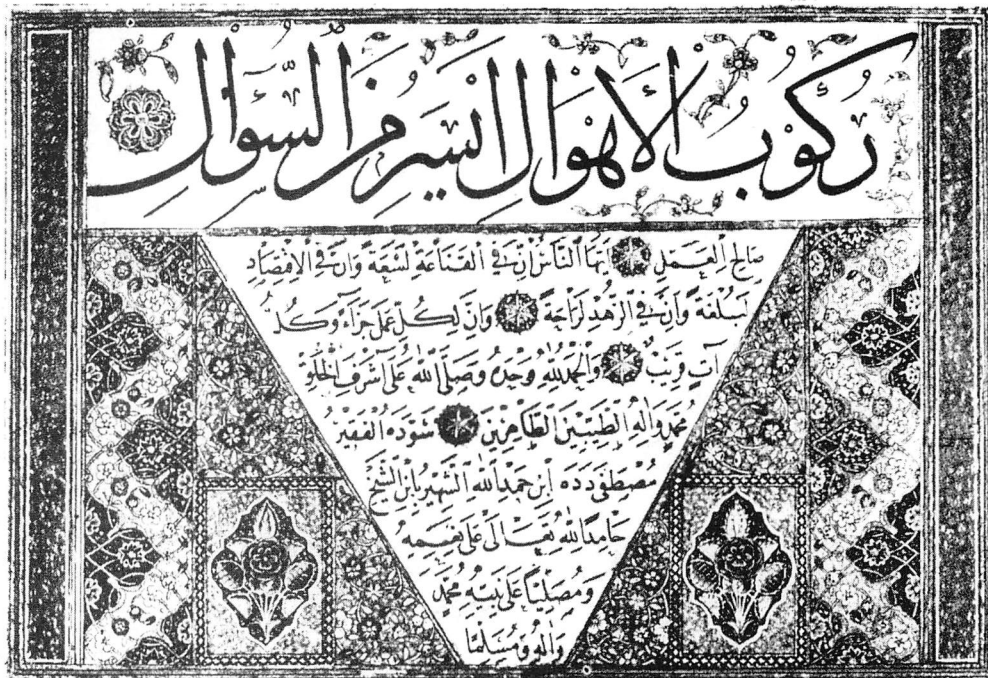 رُكُوْبُ الْأَهْوَالِ اَيْسَرُ مِنَ السُّؤَالِ
صَالِحُ الْعَمَلِ اَيُّهَا النَّاسُ اِنَّ فِي الْقَنَاعَةِ لَسَعَةً وَاِنَّ فِي الْاِقْتِصَادِ
لَبُلْغَةً وَاِنَّ فِي الزُّهْدِ لَرَاحَةً وَاِنَّ لِكُلِّ عَمَلٍ جَزَاءً وَكُلُّ
آتٍ قَرِيْبٌ وَالْحَمْدُ لِلّٰهِ وَحْدَهُ وَصَلَّى اللّٰهُ عَلٰى اَشْرَفِ الْخَلْقِ
مُحَمَّدٍ وَاٰلِهِ الطَّيِّبِيْنَ الطَّاهِرِيْنَ سَوَّدَهُ الْفَقِيْرُ
مُصْطَفٰى دَدَه اِبْنِ حَمْدِ اللّٰهِ الشَّهِيْرُ بِابْنِ الشَّيْخِ
حَامِدًا لِلّٰهِ تَعَالٰى عَلٰى نِعَمِهِ
وَمُصَلِّيًا عَلٰى نَبِيِّهِ مُحَمَّدٍ
وَاٰلِهِ وَمُسَلِّمًا